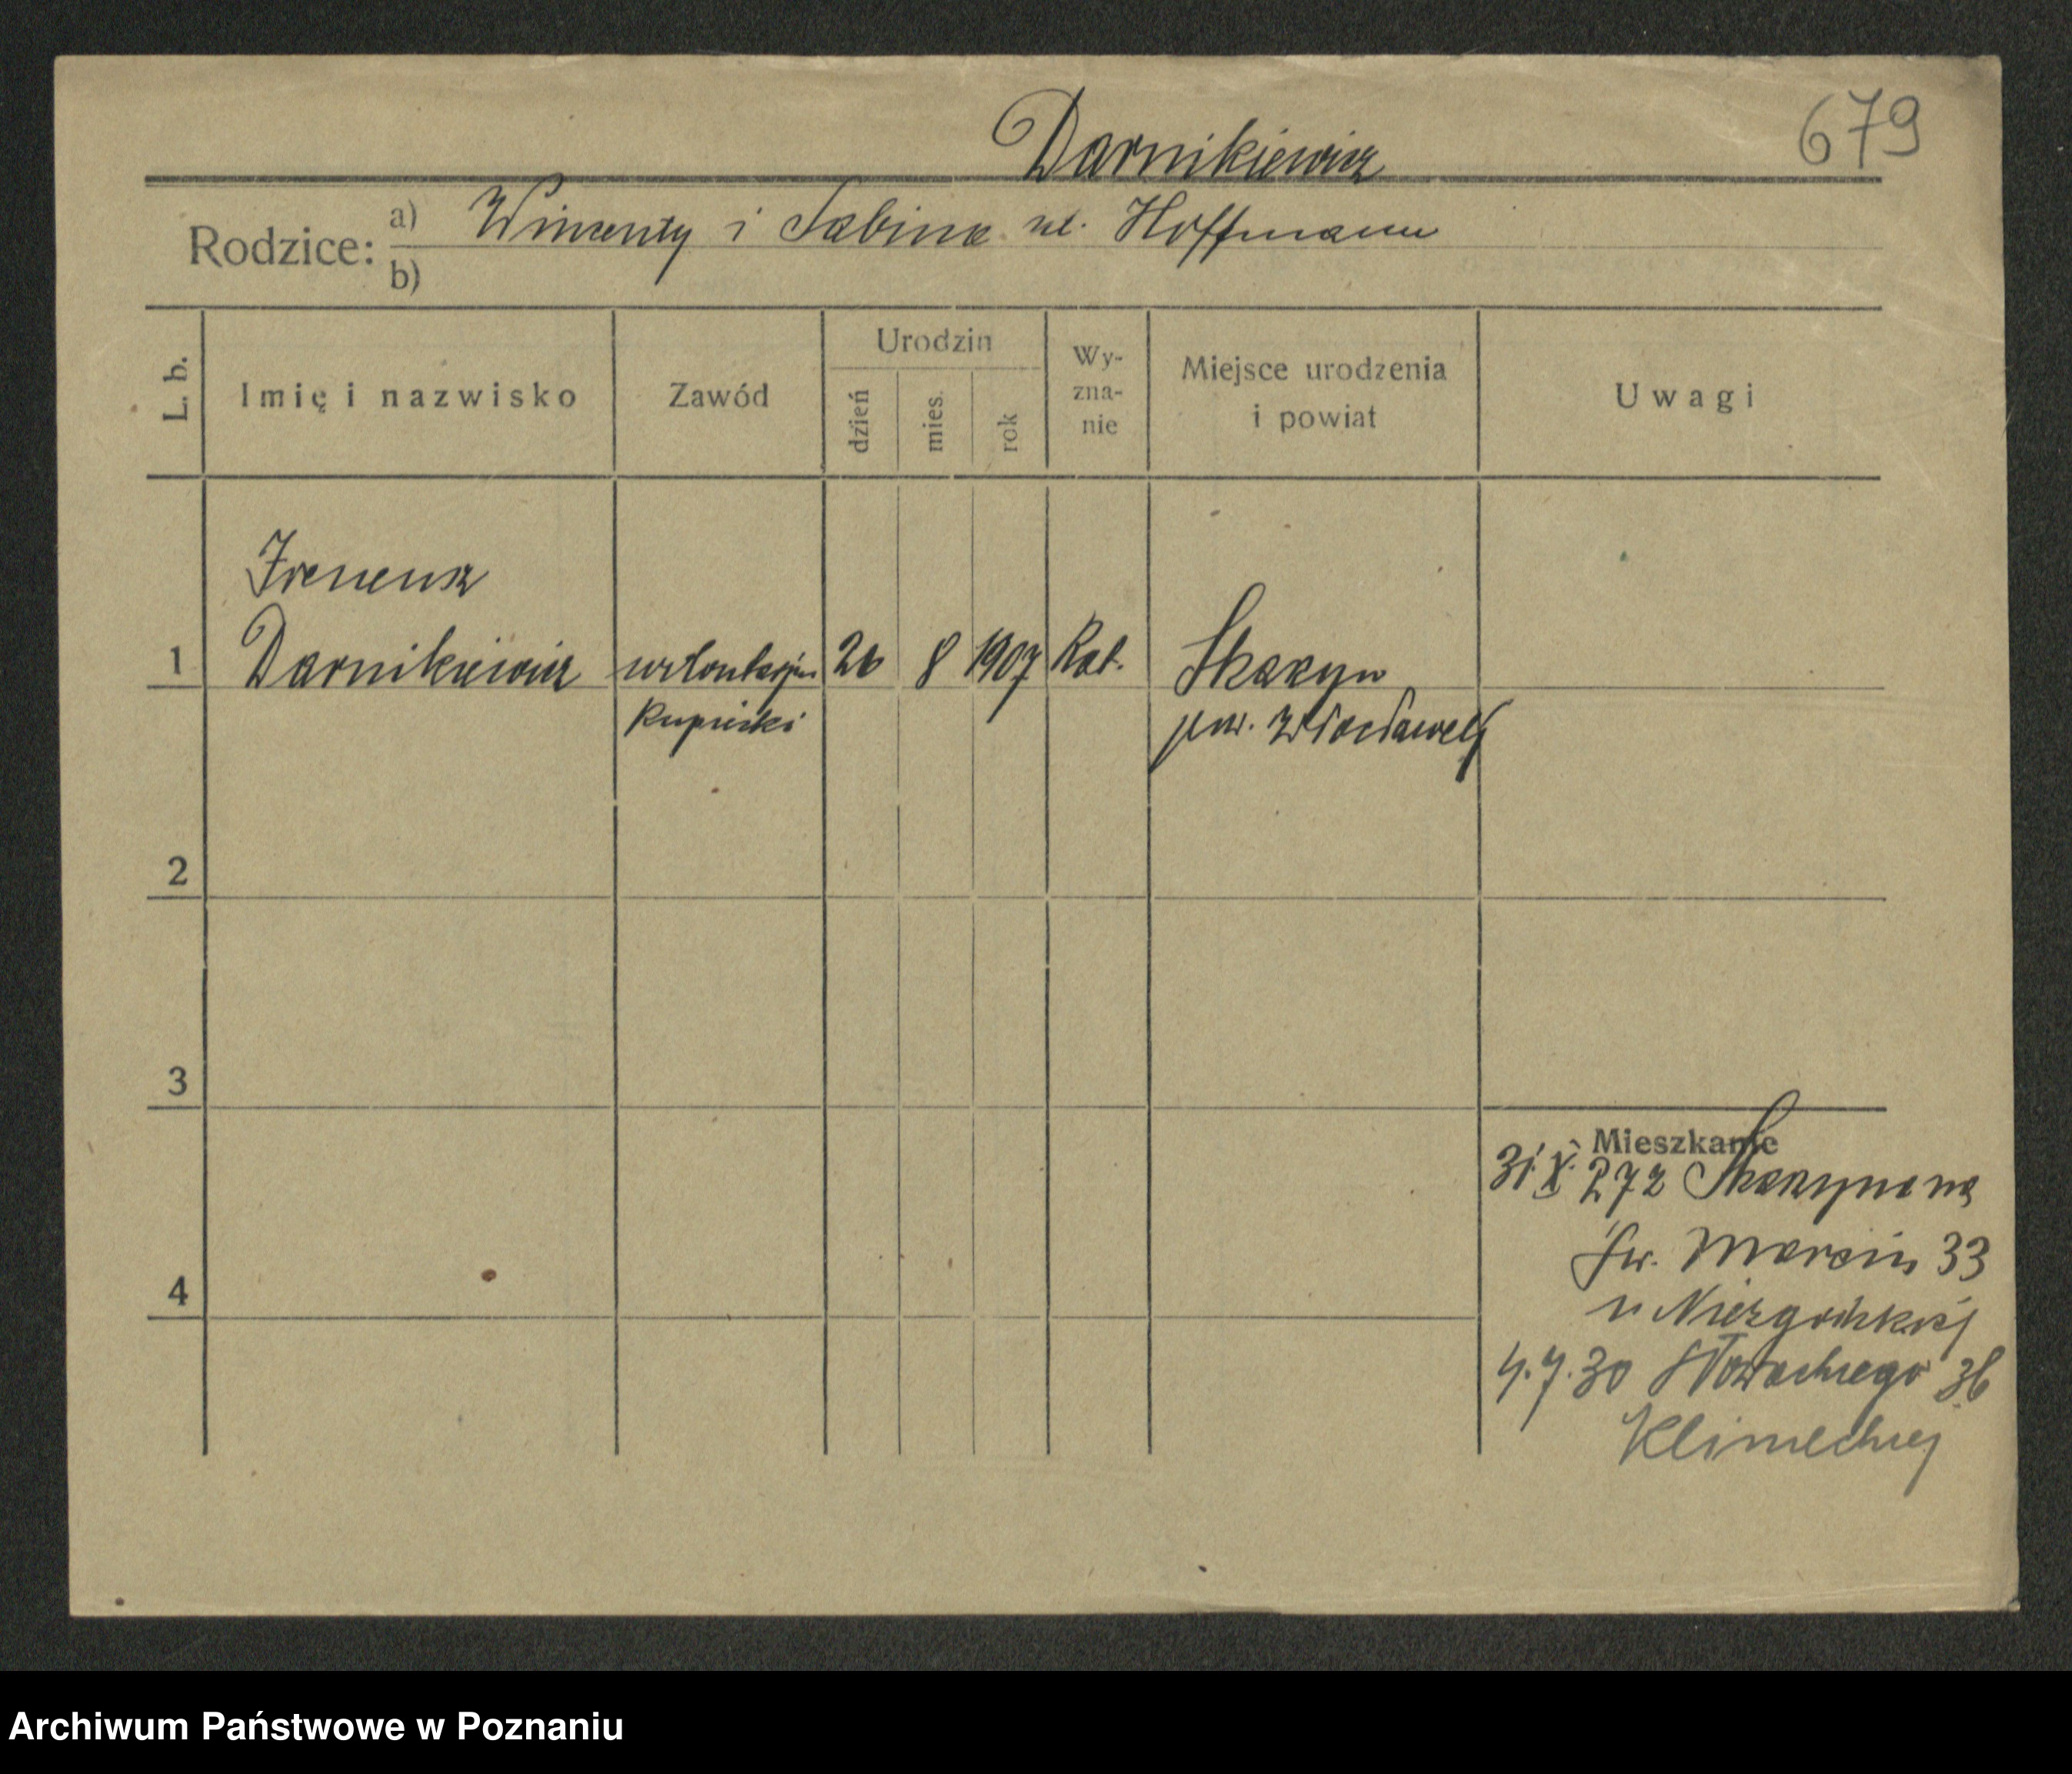 679
Darnikiewicz
Rodzice: a) Wincenty i Sabina Hoffmann
b)
L. b.
Imię i nazwisko
Zawód
Urodzin
dzień
mies.
rok
Wy-
zna-
nie
Miejsce urodzenia
i powiat
Uwagi
Ireneusz
1 Darnikiewicz 26 8 1907 Kat.
kupiecki pow. Włocławek
2
3
Mieszkanie
31. X. 27 z
Św. Marcin 33
4
4.7.30 Słowackiego 36
Klimeckiej
Archiwum Państwowe w Poznaniu